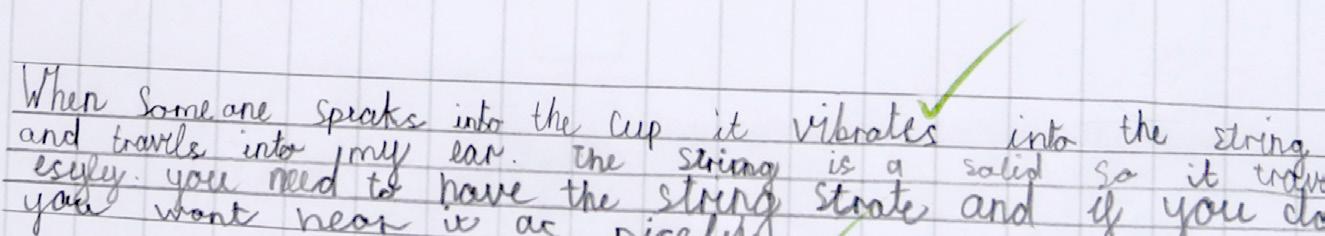 When Some one speaks into the cup it vibrates into the string
and travels into my ear. The string is a solid so it
esyley. you need to have the string strate and if you do
you wont hear it as nicely